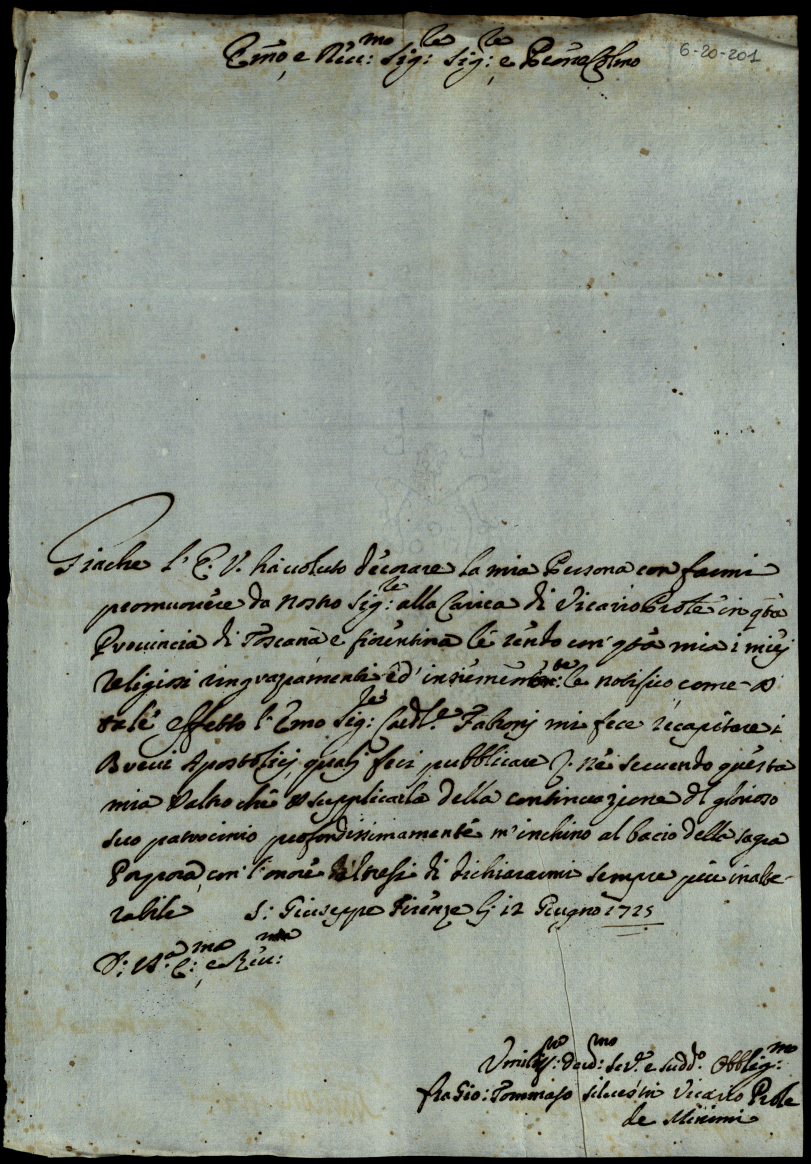 Emo e Reu:mo Sig:re Sig:re e Prone Colmo
6-20-201
Giache l'E. V. hà uoluto decorare la mia Persona con farmi
promuouere da Nostro Sig:re alla Carica di Vicario Prole in qta
Prouincia di Toscana e fiorentina le rendo con qta mia i miei
religiosi ringraziamenti ed' insiememte: le notifico, come a
tale effetto l'Emo Sig:re Cardle Fabronj mi fece recapitare i
Breui Apostolicj, qualj feci pubblicare Ne seruendo questa
mia ad altro che a supplicarla della continuazione del glorioso
suo patrocinio profondissimamente m'inchino al bacio della sagra
Porpora, con l'onore altresi di dichiararmi sempre più inalte-
rabile S: Giuseppe Firenze lj 12 Giugno 1725
D: V:a E:ma e Reu:ma
Umiliss:mo deuo:mo Seru:e e sudd:o Obblig:mo
fra Gio: Tommaso Siluestri Vicario Prole
de Minimi